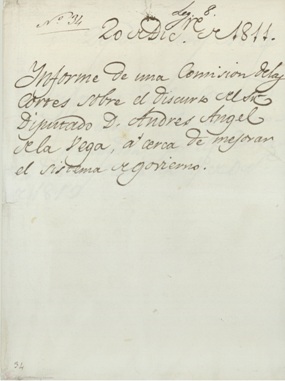 Leg. 8.
Nº 34
20 de Dic.e de 1811.
Informe de una Comision de las
Cortes sobre el discurso del Sr.
Diputado D. Andres Angel
de la Vega, á cerca de mejorar
el sistema de govierno.
34